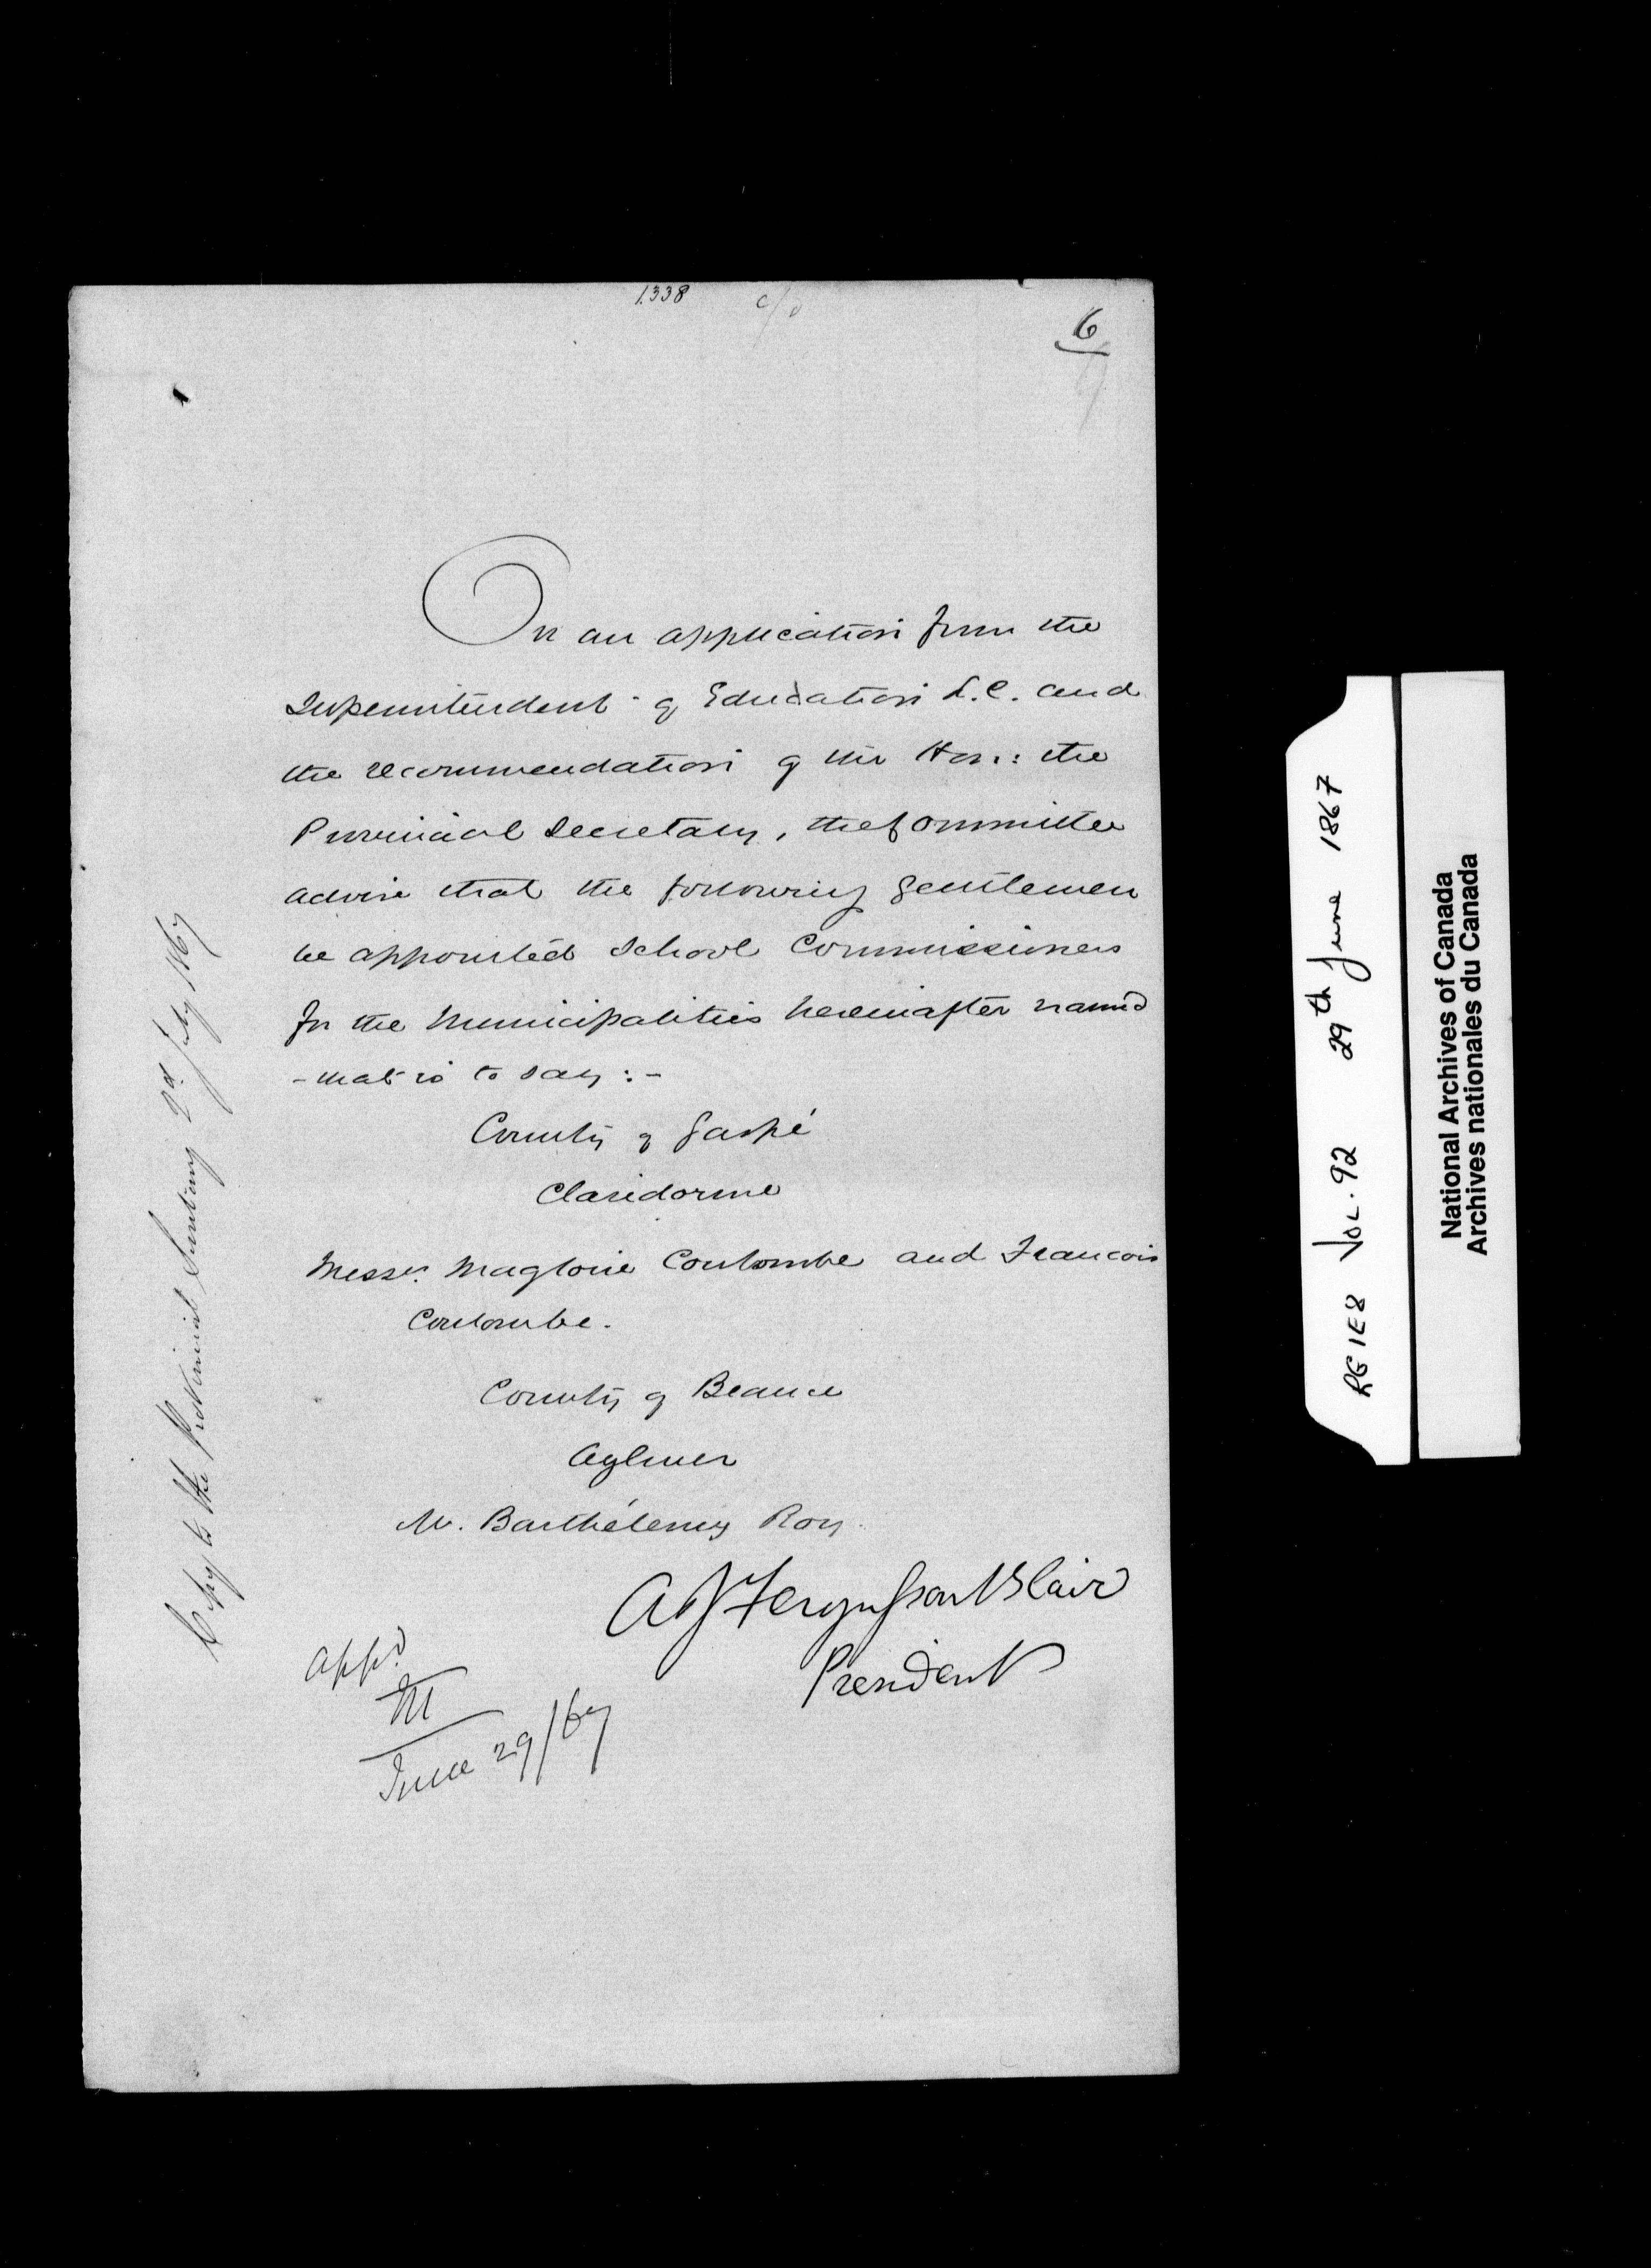 1338
6
On an application from the
Superintendent of Education L.C. and
the recommendation of the Hon: the
Provincial Secretary, the Committee
advise that the following gentlemen
be appointed School Commissioners
for the Municipalities hereinafter named
- that is to say :-
County of Gaspé
Claridorme
Messrs. Magloire Coulombe and Francois
Coulombe.
County of Beauce
Aylmer
M. Barthélemy Roy.
A J Fergusson Blair
President
appd
M
June 29/67
Copy to the Provincial Secretary 2d July 1867
RG 1E8 VOL. 92 29th June 1867
National Archives of Canada
Archives nationales du Canada